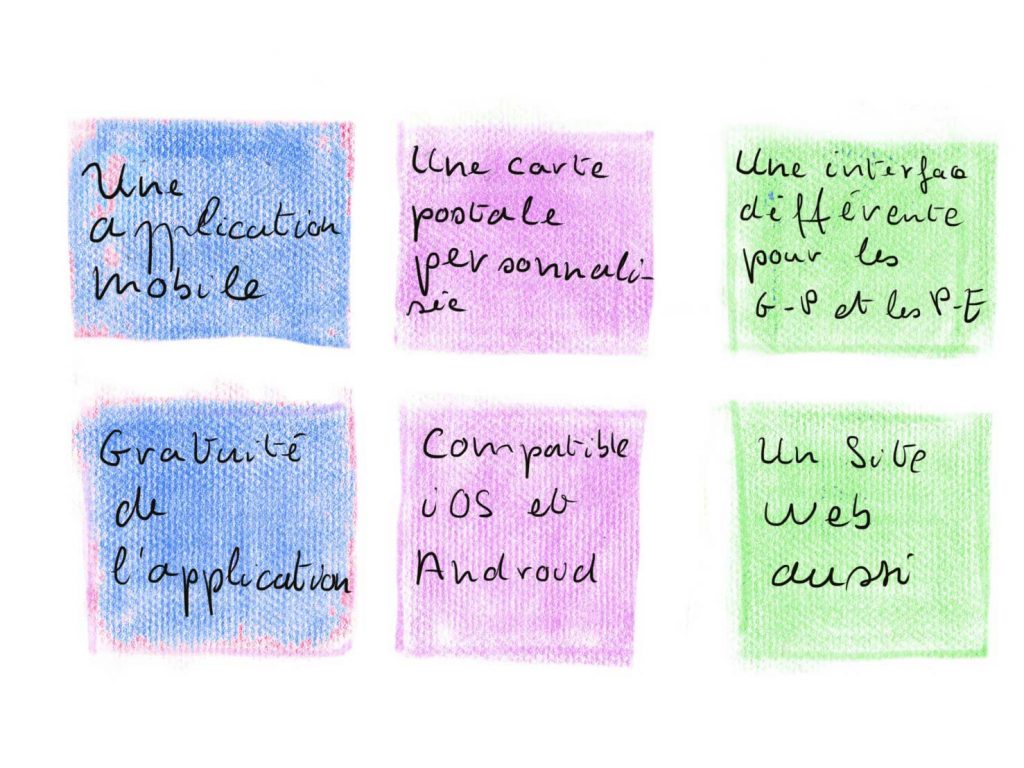 Une
application
mobile
Une carte
postale
personnali-
sée
Une interface
différente
pour les
G-P et les P-E
Gratuité
de
l'application
Compatible
iOS et
Android
Un Site
Web
aussi